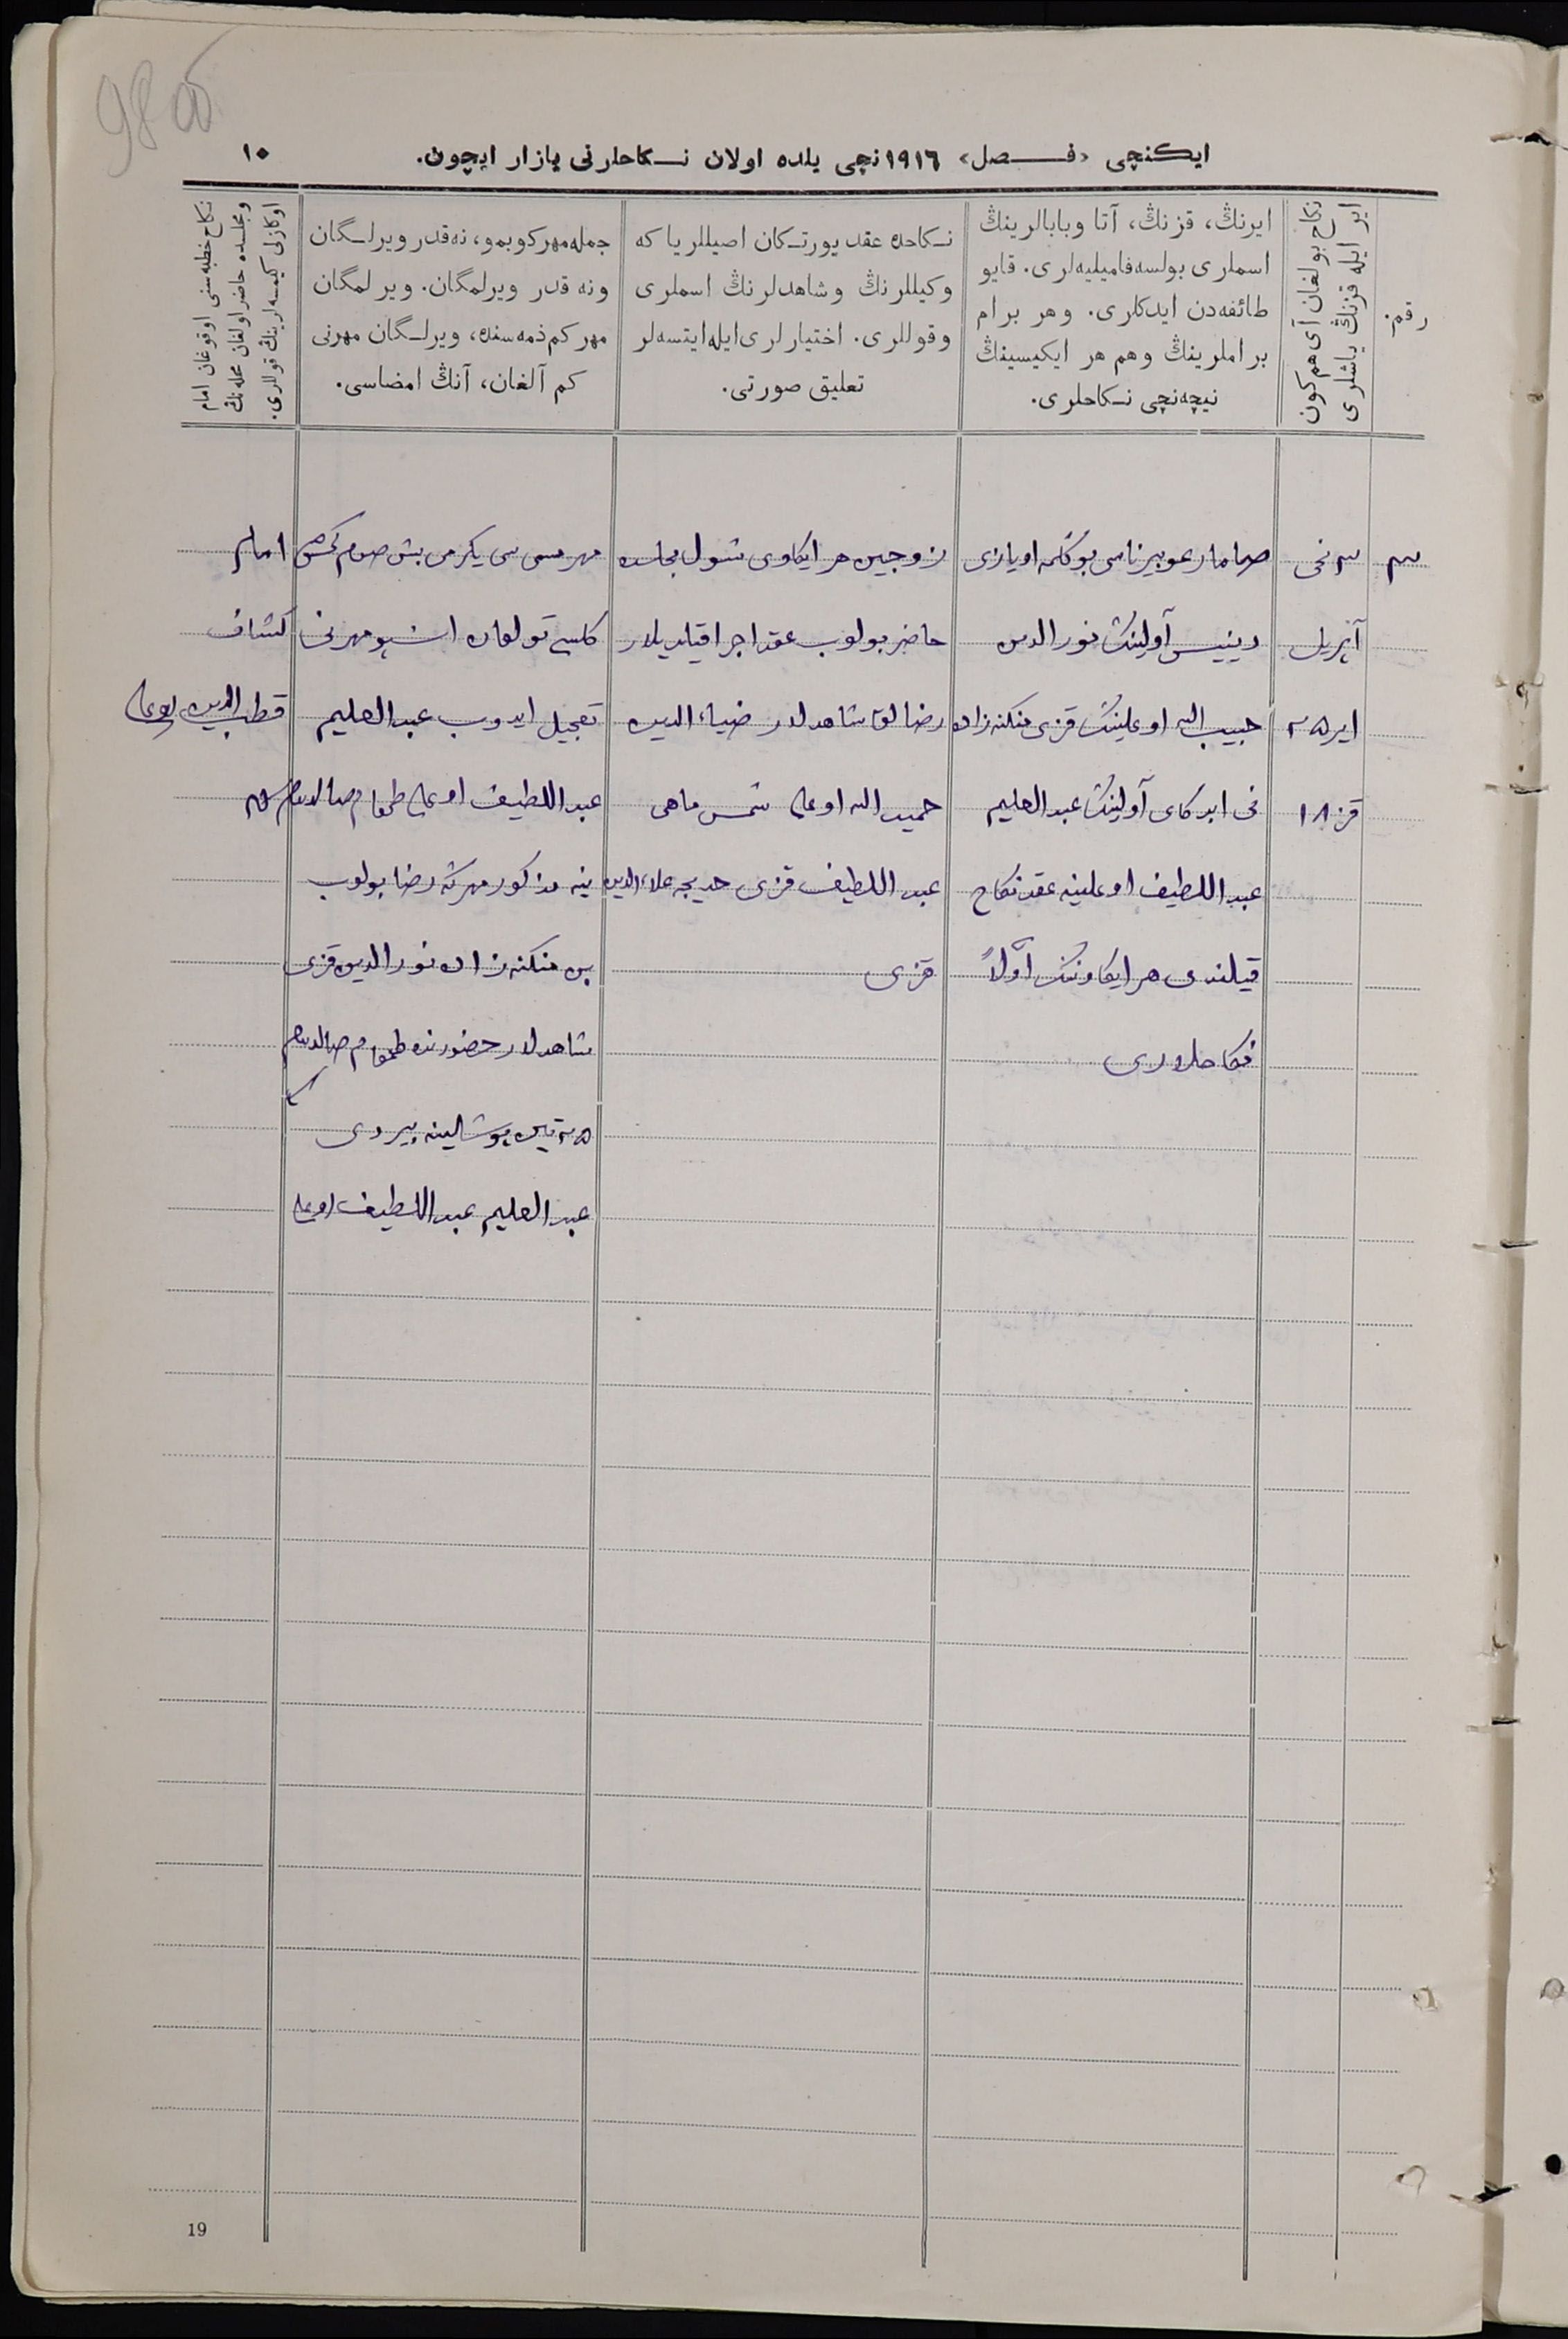 98 об
ایكنچی «فصل» ۱۹۱٦نچی یلده اولان نكاحلرنی یازار ایچون.
۱۰
رقم.
نكاح بولغان آی هم كون
ایر ایله قزنڭ یاشلری
ایرنڭ، قزنڭ، آتا وبابالرینڭ
اسملری بولسه فامیلیه‌لری. قایو
طائفه‌دن ایدكلری. وهر برام
براملرینڭ وهم هر ایكیسینڭ
نیچه‌نچی نكاحلری.
نكاحده عقد یورتكان اصیللر یا كه
وكیللرنڭ وشاهدلرنڭ اسملری
وقوللری. اختیارلری ایله ایتسه‌لر
تعلیق صورتی.
جمله مهر كوبمو، نه‌قدر ویرلگان
ونه قدر ویرلمگان. ویرلمگان
مهر كم ذمه‌سنده، ویرلگان مهرنی
كم آلغان، آنڭ امضاسی.
نكاح خطبه‌سنی اوقوغان امام
ومجلسده حاضر اولغان محله‌نڭ
اوكازلی كیمسه‌لرینڭ قوللری.
۳
۳ نچی
آپریل
ایر ۲۵
قز ۱۸
بوگلمه اویازی
آولینڭ نورالدین
حبیب الله اوغلینڭ قزی منكنه زاده
نی آولینڭ عبدالعلیم
عبداللطیف اوغلینه عقد نكاح
قیلندی هر ایكاوننڭ اوّلاً
نكاحلاری
زوجین هر ایكاوی شول مجلسده
حاضر بولوب عقد اجرا قیلدیلار
رضالق شاهدلار ضیاء الدین
حمید الله اوغلی شمس ماهی
عبداللطیف قزی خدیجه علاءالدین
قزی
مهر مسمی سی یكرمی بش صوم
تولغان اشبو مهرنی
تعجیل ایدوب عبدالعلیم
عبداللطیف اوغلی
ینه مذكور مهرگه رضا بولوب
بن منكنه زاده نورالدین قزی
شاهدلار حضورنده
۲۵ تین پوشالینه بیردی
عبدالعلیم عبداللطیف اوغلی
امام
كشاف
قطب الدین اوغلی
19